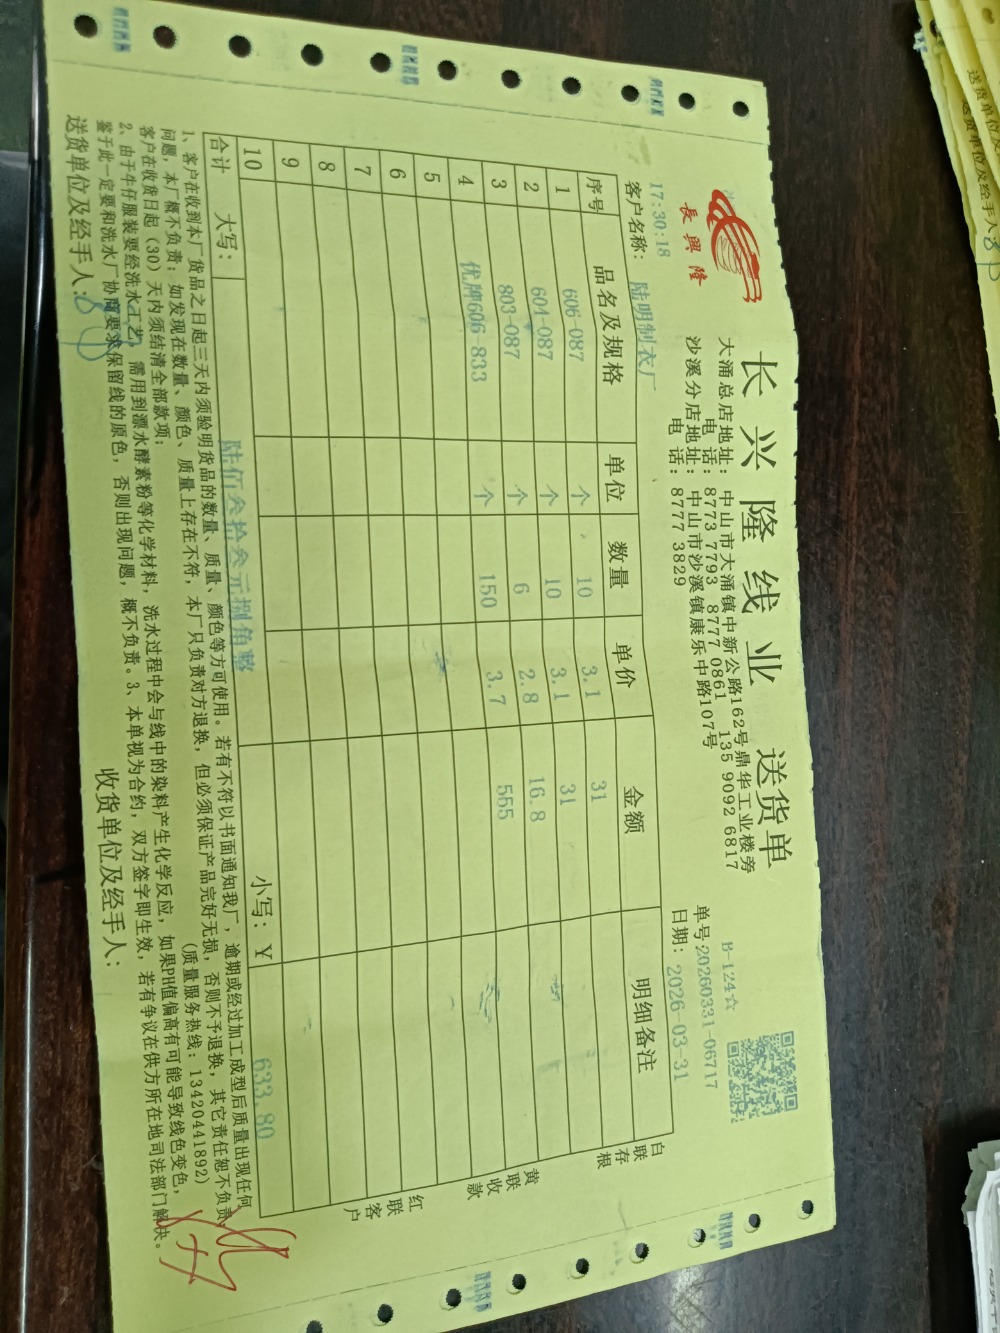 长兴隆线业 送货单
長興隆
B-124☆
大涌总店地址：中山市大涌镇中新公路162号鼎华工业楼旁
电 话：8773 7793 8777 0861 135 9092 6817
沙溪分店地址：中山市沙溪镇康乐中路107号
电 话：8777 3829
单号:20260331-06717
17:30:18
日期：2026-03-31
客户名称：陆明制衣厂
序号 品名及规格 单位 数量 单价 金额 明细备注
1 606-087 个 10 3.1 31
2 604-087 个 10 3.1 31
3 803-087 个 6 2.8 16.8
4 优牌606-833 个 150 3.7 555
5
6
7
8
9
10
合计 大写：陆佰叁拾叁元捌角整 小写：¥ 633.80
白联存根
黄联收款
红联客户
1、客户在收到本厂货品之日起三天内须验明货品的数量、质量、颜色等方可使用。若有不符以书面通知我厂，逾期或经过加工成型后质量出现任何
问题，本厂概不负责；如发现在数量、颜色、质量上存在不符，本厂只负责对方退换，但必须保证产品完好无损，否则不予退换，其它责任恕不负责。
客户在收货日起（30）天内须结清全部款项； （质量服务热线：13420441892）
2、由于牛仔服装要经洗水工艺，需用到漂水酵素粉等化学材料，洗水过程中会与线中的染料产生化学反应，如果PH值偏高有可能导致线色变色，
鉴于此一定要和洗水厂协商要求保留线的原色，否则出现问题，概不负责。3、本单视为合约，双方签字即生效，若有争议在供方所在地司法部门解决。
送货单位及经手人： 收货单位及经手人：
送货单位及经手人